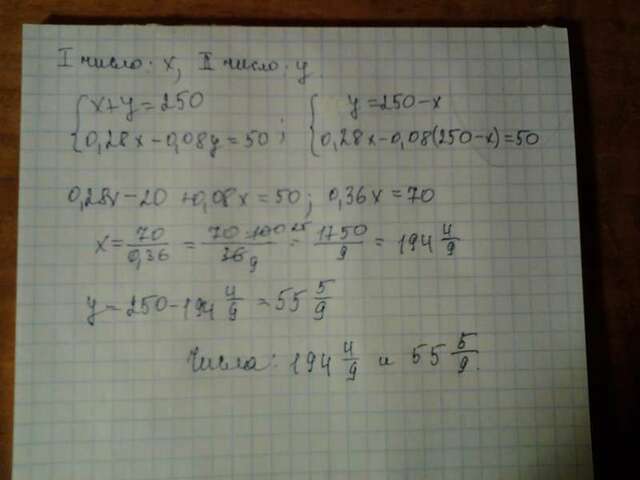 I число: x, II число: y
{x+y=250
0,28x-0,08y=50; {y=250-x
0,28x-0,08(250-x)=50
0,28x-20+0,08x=50; 0,36x=70
x=70/0,36=70·100 25/36 9=1750/9=194 4/9
y=250-194 4/9=55 5/9
Числа: 194 4/9 и 55 5/9.